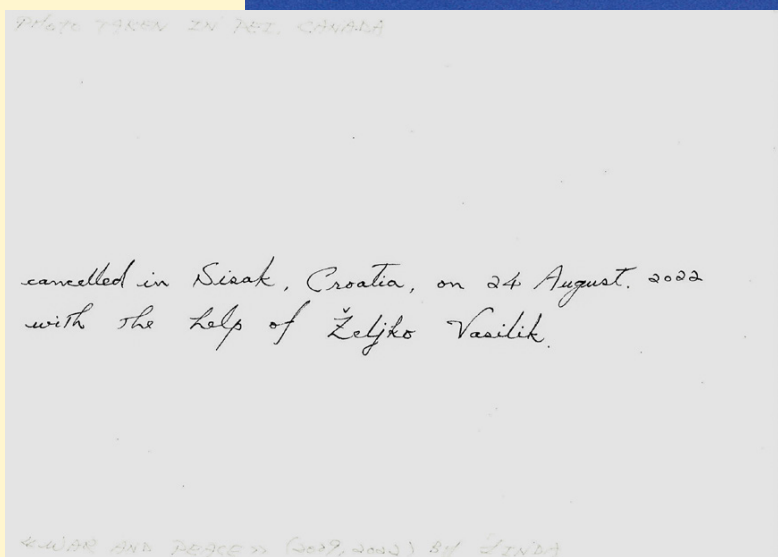 PHOTO TAKEN IN PEI. CANADA
cancelled in Sisak, Croatia, on 24 August. 2022
with the help of Željko Vasilik.
«WAR AND PEACE» (2009, 2022) BY LINDA